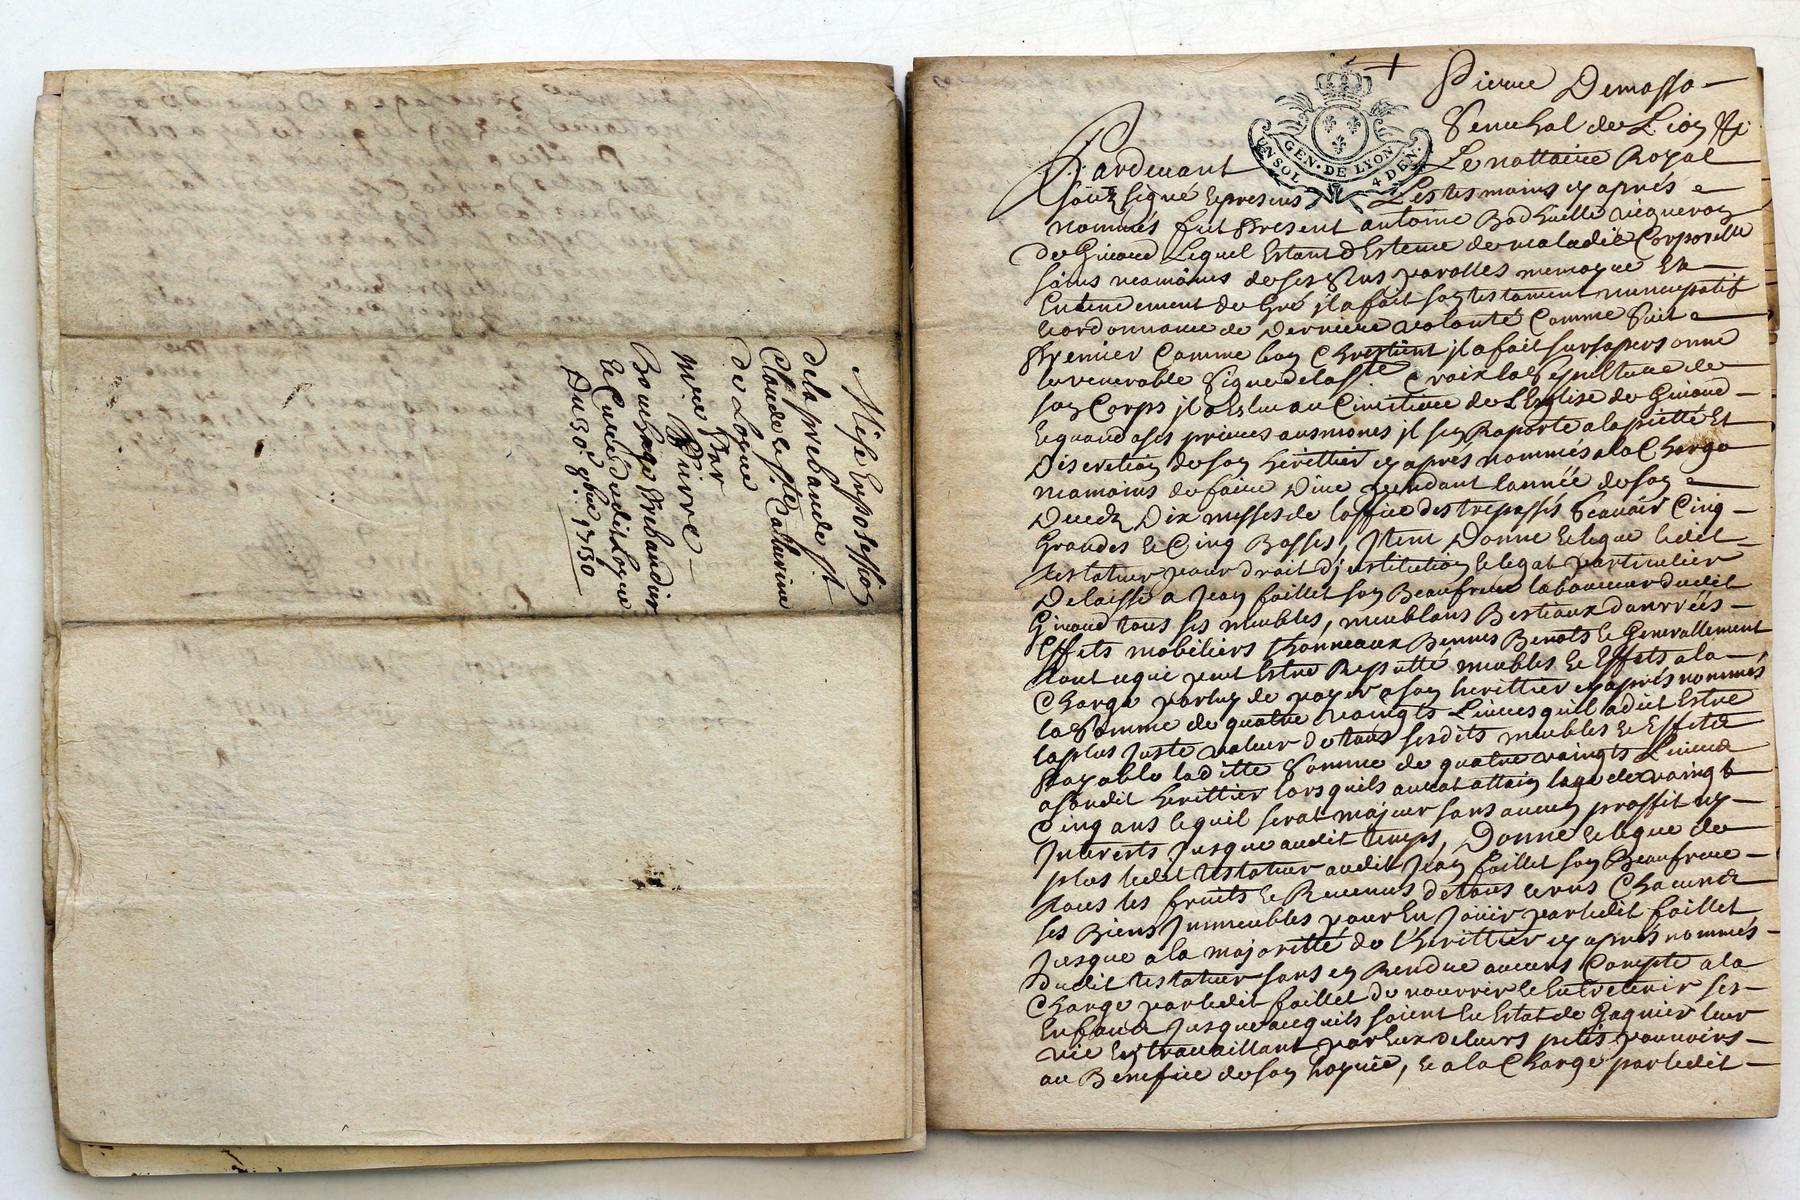 Mise En possession
de la prebande st
Claude et ste Catherine
de Logne
Par
mre Pierre
Bouchage Prebandier
Et Curé Dudit Logne
Du 30e 9bre 1730
Pierre Demasso
Senechal de Lion &c
GEN. DE LYON
UN SOL 4 DEN.
Pardevant Le nottaire Royal
soubzsigné et presens Les tesmoins cy aprés
nommés fut Present antoine vigneron
de Givord Lequel Estant d'Estenu de maladie Corporelle
sains neamoins de ses sens parolles memoyre Et
Entendement de Gré jl a fait son testament nuncupatif
et ordonnance de Derniere volonté Comme Suit
Premier Comme bon Chrestient jl a fait sur sa personne
le venerable Signe de la ste Croix la Sepulture de
son Corps jl a Eslue au Cimetiere de L'Eglise de Givord
Et quand a ses prieres aumones jl sen Raporte a la pietté Et
Discretion de son herittier cy apres nommés a la Charge
neamoins de faire Dire pendant l'année de son
Decedz Dix messes de l'office des trepassés Scavoir Cinq
Grandes et Cinq Basses, Jtem Donne et legue ledit
testateur pour droit d'jnstitution et legat particulier
Delaissé a Jean faillet son Beaufrere laboureur dudit
Givord tous ses meubles, meublans Bestiaux danrrées
Effets mobiliers thonneaux Bennes Benots et Generallement
tout ce qui peut Estre Reputté meubles et Effets a la
Charge par luy de payer a son herittier cy aprés nommés
la Somme de quatre vaingts Livres qu'il a dit Estre
la plus Juste valeur de tous sesdits meubles et Effets
Payable laditte Somme de quatre vaingts Livres
a sondit herittier lors qu'ils aurat attain l'age de vaingt
Cinq ans et quil serat majeur sans aucun proffit ny
Jnterests Jusque audit temps, Donne et legue de
plus ledit testateur audit Jean faillet son Beaufrere
tous les fruits et Revenus de tous et uns Chacuns
ses Biens Jmmeubles pour En Jouir par ledit faillet
Jusque a la majoritté de l'herittier cy aprés nommés
dudit testateur sans en Rendre aucuns Compte a la
Charge par ledit faillet de nourrir et Entretenir ses
Enfants Jusque a ce quils soient En Estat de Gagnier leur
vie En travaillant par Eux de leurs petis pouvoirs
au Benefice de son hoyrie, et a la Charge par ledit